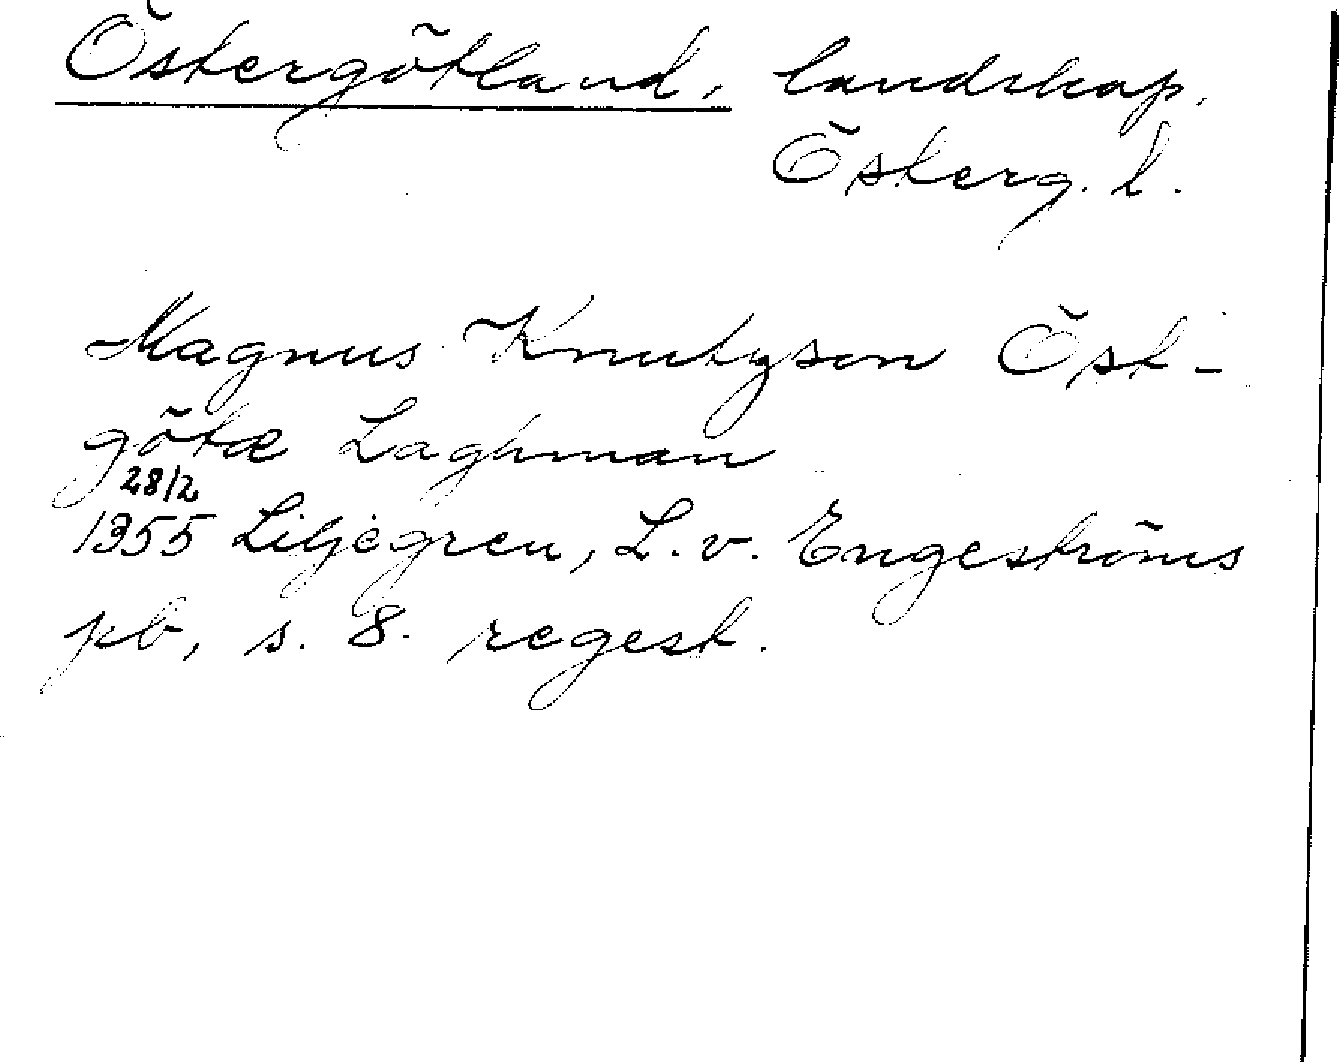 Östergötland, landskap.
Österg. l.
Magnus Knutzson Öst-
götæ Laghman
28/2
1355 Liljegren, L. v. Engeströms
pb, s. 8. regest.